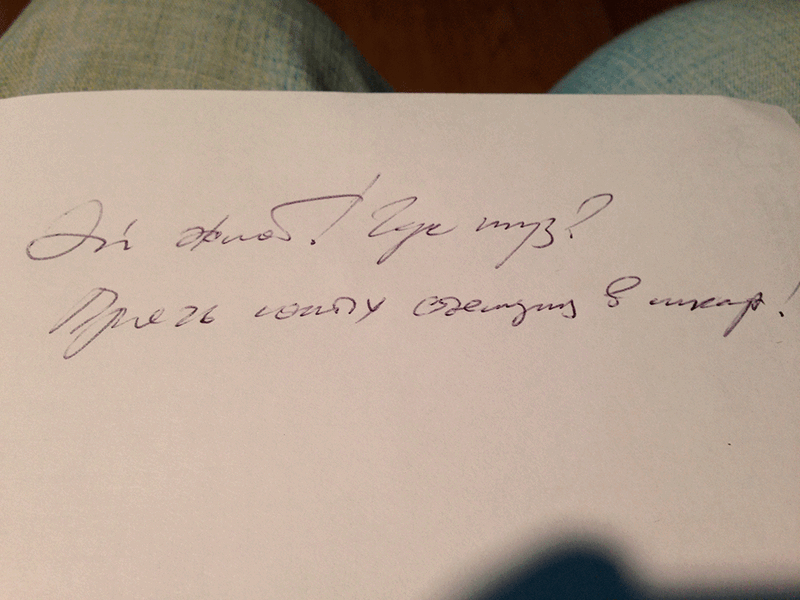 Эй жлоб! Где туз?
Прячь юных съёмщиц в шкаф!